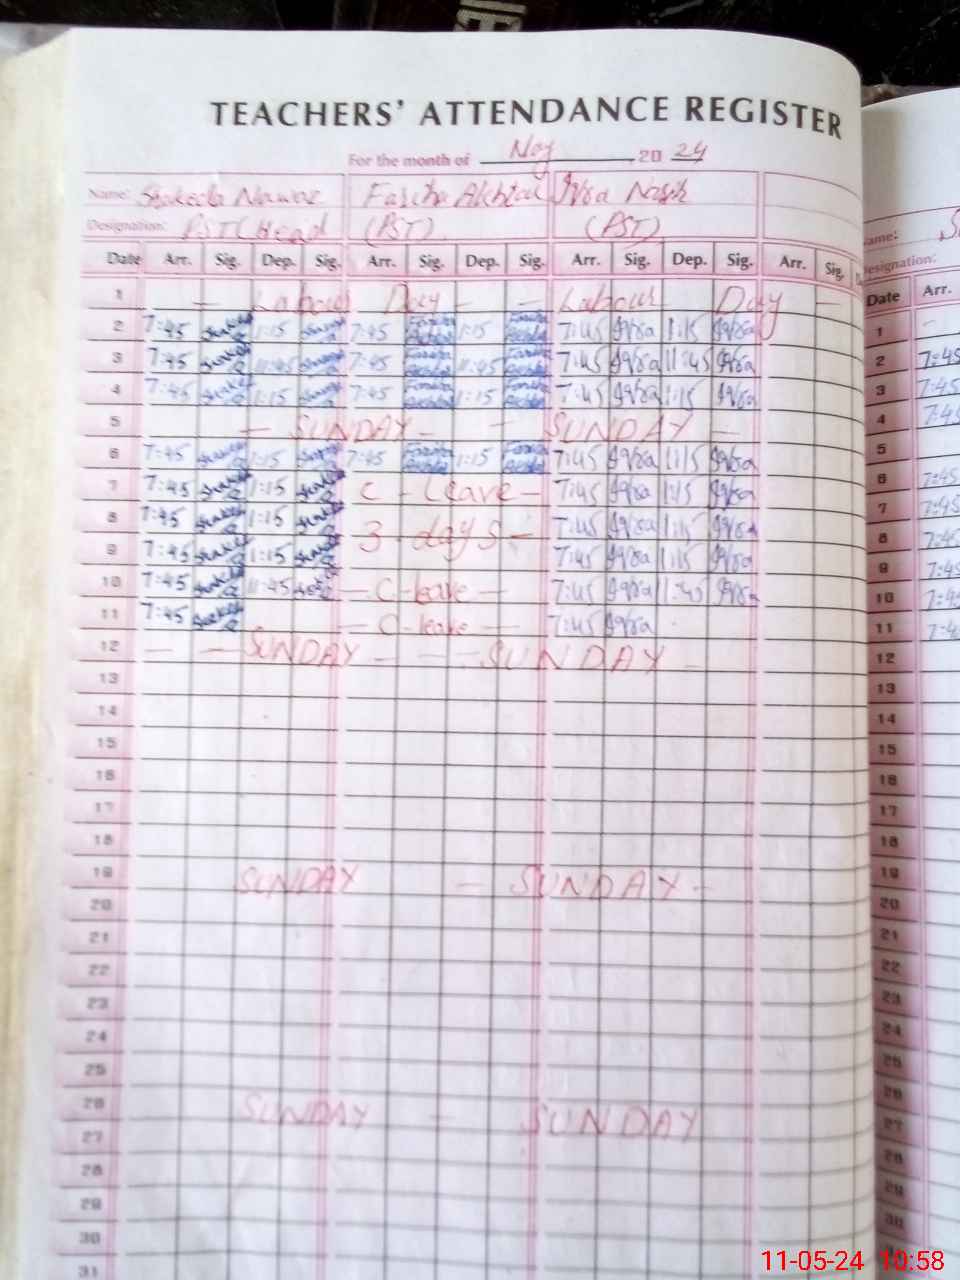 TEACHERS' ATTENDANCE REGISTER
For the month of May 20 24
Name: Shakeela Nawaz Fasiha Akhtar Iqra Nasir
Designation: PST (Head (PST) (PST)
Date Arr. Sig. Dep. Sig. Arr. Sig. Dep. Sig. Arr. Sig. Dep. Sig. Arr. Sig.
1 - Labour Day - - Labour Day -
2 7:45 Shakeela 1:15 Shakeela 7:45 Fasiha Akhtar 1:15 Fasiha Akhtar 7:45 Iqra 1:15 Iqra
3 7:45 Shakeela 11:45 Shakeela 7:45 Fasiha Akhtar 11:45 Fasiha Akhtar 7:45 Iqra 11:45 Iqra
4 7:45 Shakeela 1:15 Shakeela 7:45 Fasiha Akhtar 1:15 Fasiha Akhtar 7:45 Iqra 1:15 Iqra
5 - SUNDAY - - SUNDAY -
6 7:45 Shakeela 1:15 Shakeela 7:45 Fasiha Akhtar 1:15 Fasiha Akhtar 7:45 Iqra 1:15 Iqra
7 7:45 Shakeela 1:15 Shakeela C - Leave - 7:45 Iqra 1:15 Iqra
8 7:45 Shakeela 1:15 Shakeela 3 - days - 7:45 Iqra 1:15 Iqra
9 7:45 Shakeela 1:15 Shakeela 7:45 Iqra 1:15 Iqra
10 7:45 Shakeela 11:45 Shakeela - C - leave - 7:45 Iqra 11:45 Iqra
11 7:45 Shakeela - C - leave - 7:45 Iqra
12 - - SUNDAY - - - SUNDAY -
13
14
15
16
17
18
19 SUNDAY - SUNDAY -
20
21
22
23
24
25
26 SUNDAY - SUNDAY
27
28
29
30
31
ame:
esignation:
Date Arr.
1 -
2 7:45
3 7:45
4 7:45
5
6 7:45
7 7:45
8 7:45
9 7:45
10 7:45
11 7:45
12
13
14
15
16
17
18
19
20
21
22
23
24
25
26
27
28
29
30
11-05-24 10:58